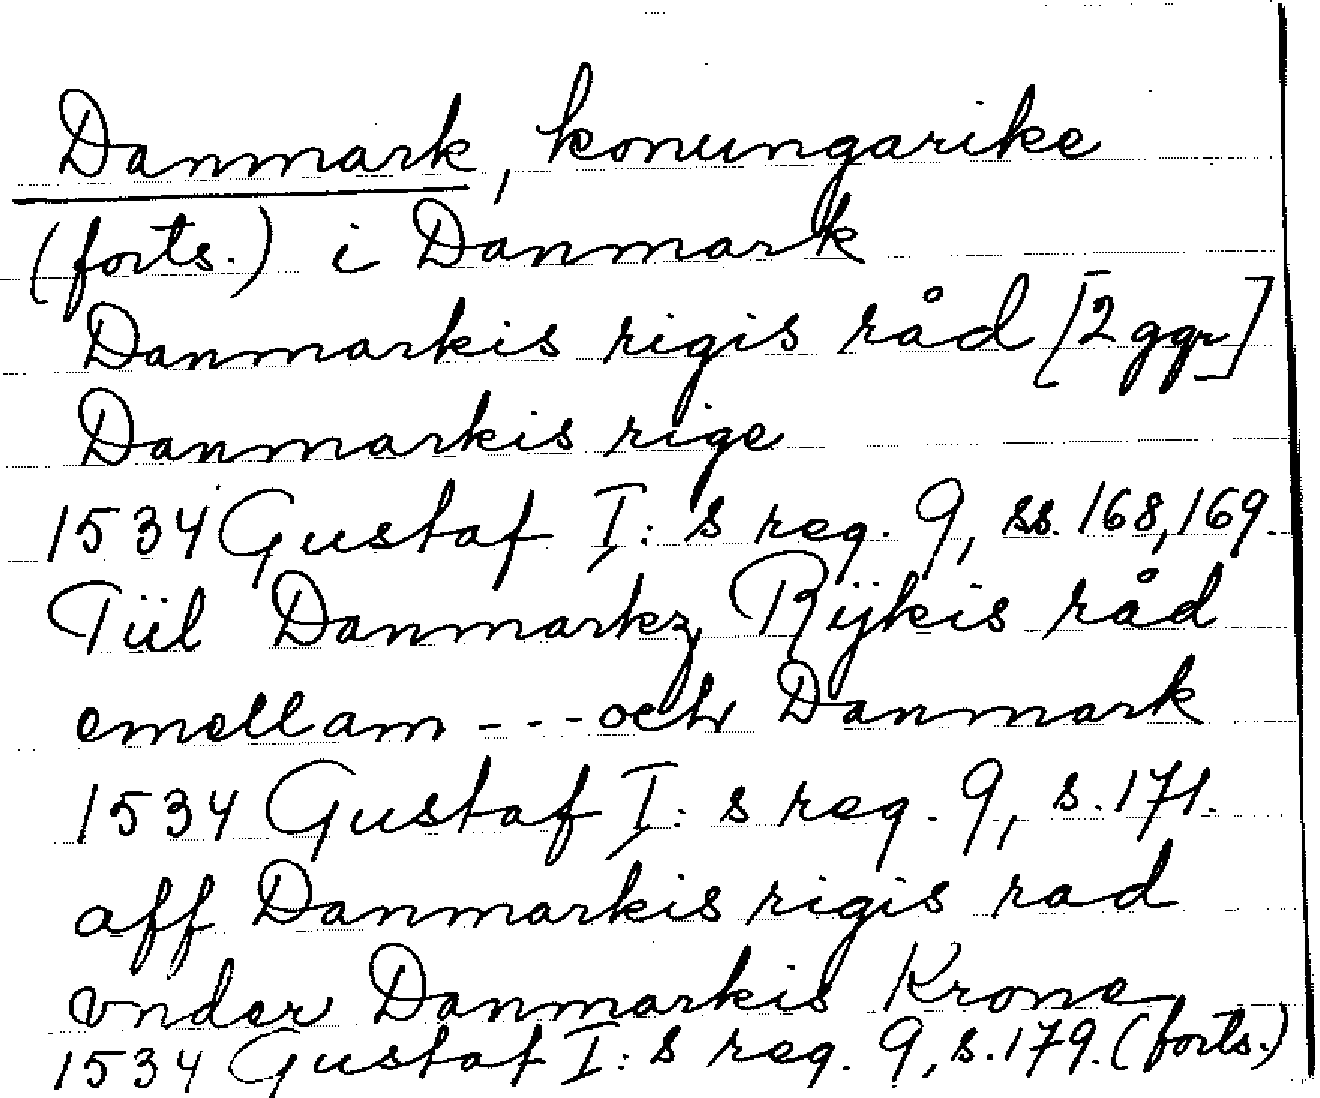 Danmark, konungarike
(forts.) i Danmark
Danmarkis rigis råd [2 ggr]
Danmarkis rige
1534 Gustaf I:s reg. 9, ss. 168, 169.
Tiil Danmarkz Rijkis råd
emellam --- och Danmark
1534 Gustaf I:s reg. 9, s. 171.
aff Danmarkis rigis rad
vnder Danmarkis Krone
1534 Gustaf I:s reg. 9, s. 179. (forts.)